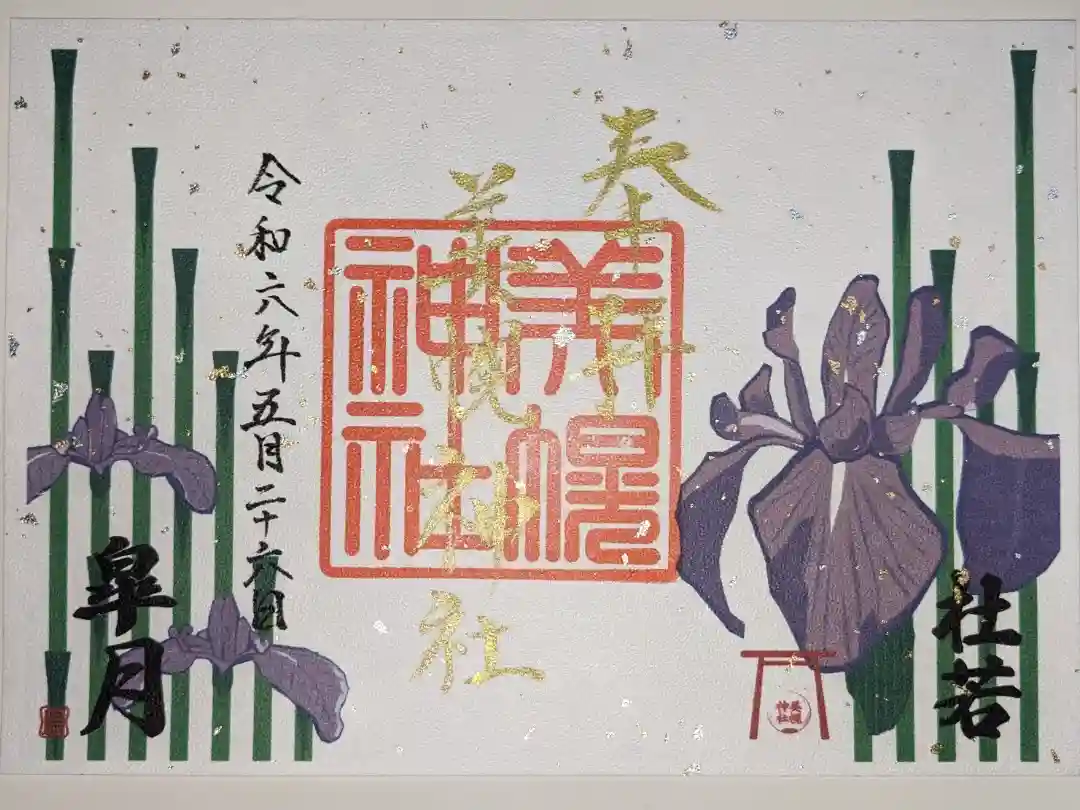 杜若
奉拝
美幌神社
美幌
神社
美幌
神社
令和六年五月二十六日
皐月